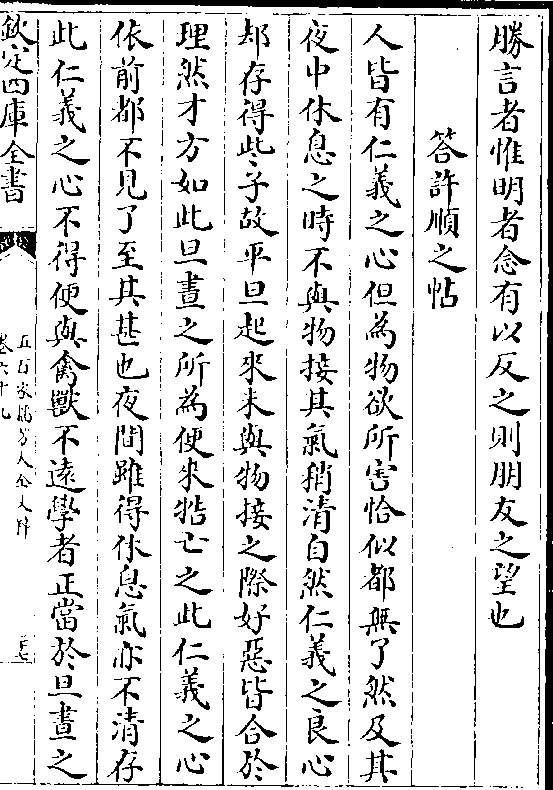 勝言者惟明者念有以反之則朋友之望也
答許順之帖
人皆有仁義之心但為物欲所害恰似都無了然及其
夜中休息之時不與物接其氣稍清自然仁義之良心
却存得些子故平旦起來未與物接之際好惡皆合於
理然才方如此旦晝之所為便來牿亡之此仁義之心
依前都不見了至其甚也夜間雖得休息氣亦不清存
此仁義之心不得便與禽獸不遠學者正當於旦晝之
欽定四庫全書
五百家播芳大全文粹
卷六十九